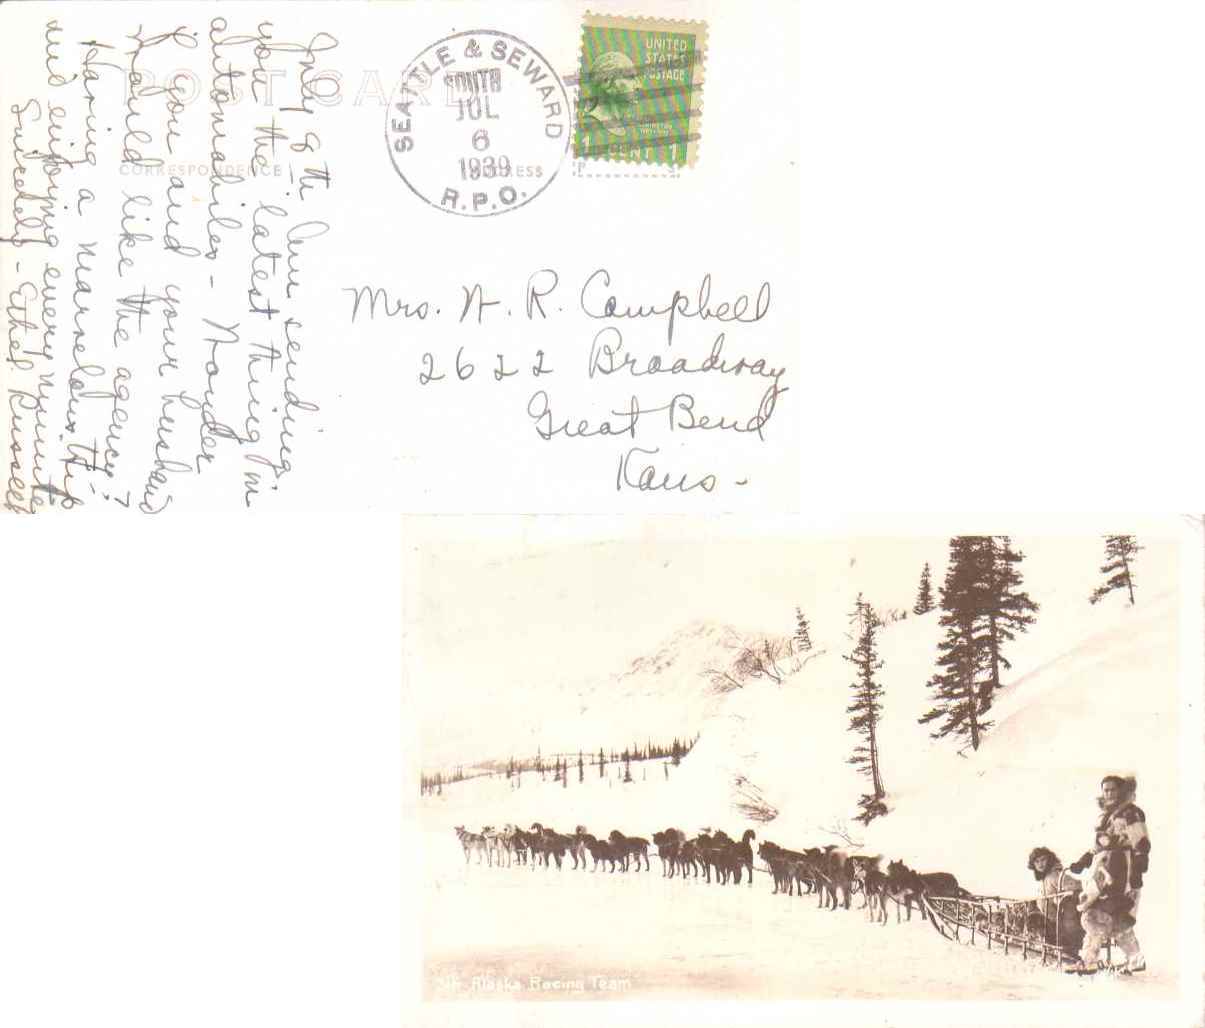 POST CARD
CORRESPONDENCE
ADDRESS
SEATTLE & SEWARD
SOUTH
JUL
6
1939
R.P.O.
UNITED
STATES
POSTAGE
1 CENT 1
July 8 th Am sending
you the latest thing in
automobiles - Wonder
if you and your husband
would like the agency?
Having a marvelous trip -
and enjoying every minute.
Sincerely - Ethel Russell
Mrs. H. R. Campbell
2622 Broadway
Great Bend
Kans -
Alaska Racing Team